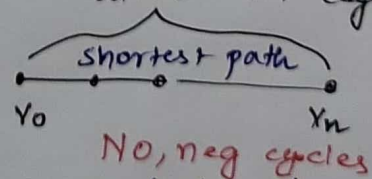 shortest path
Vo Vn
No, neg cycles